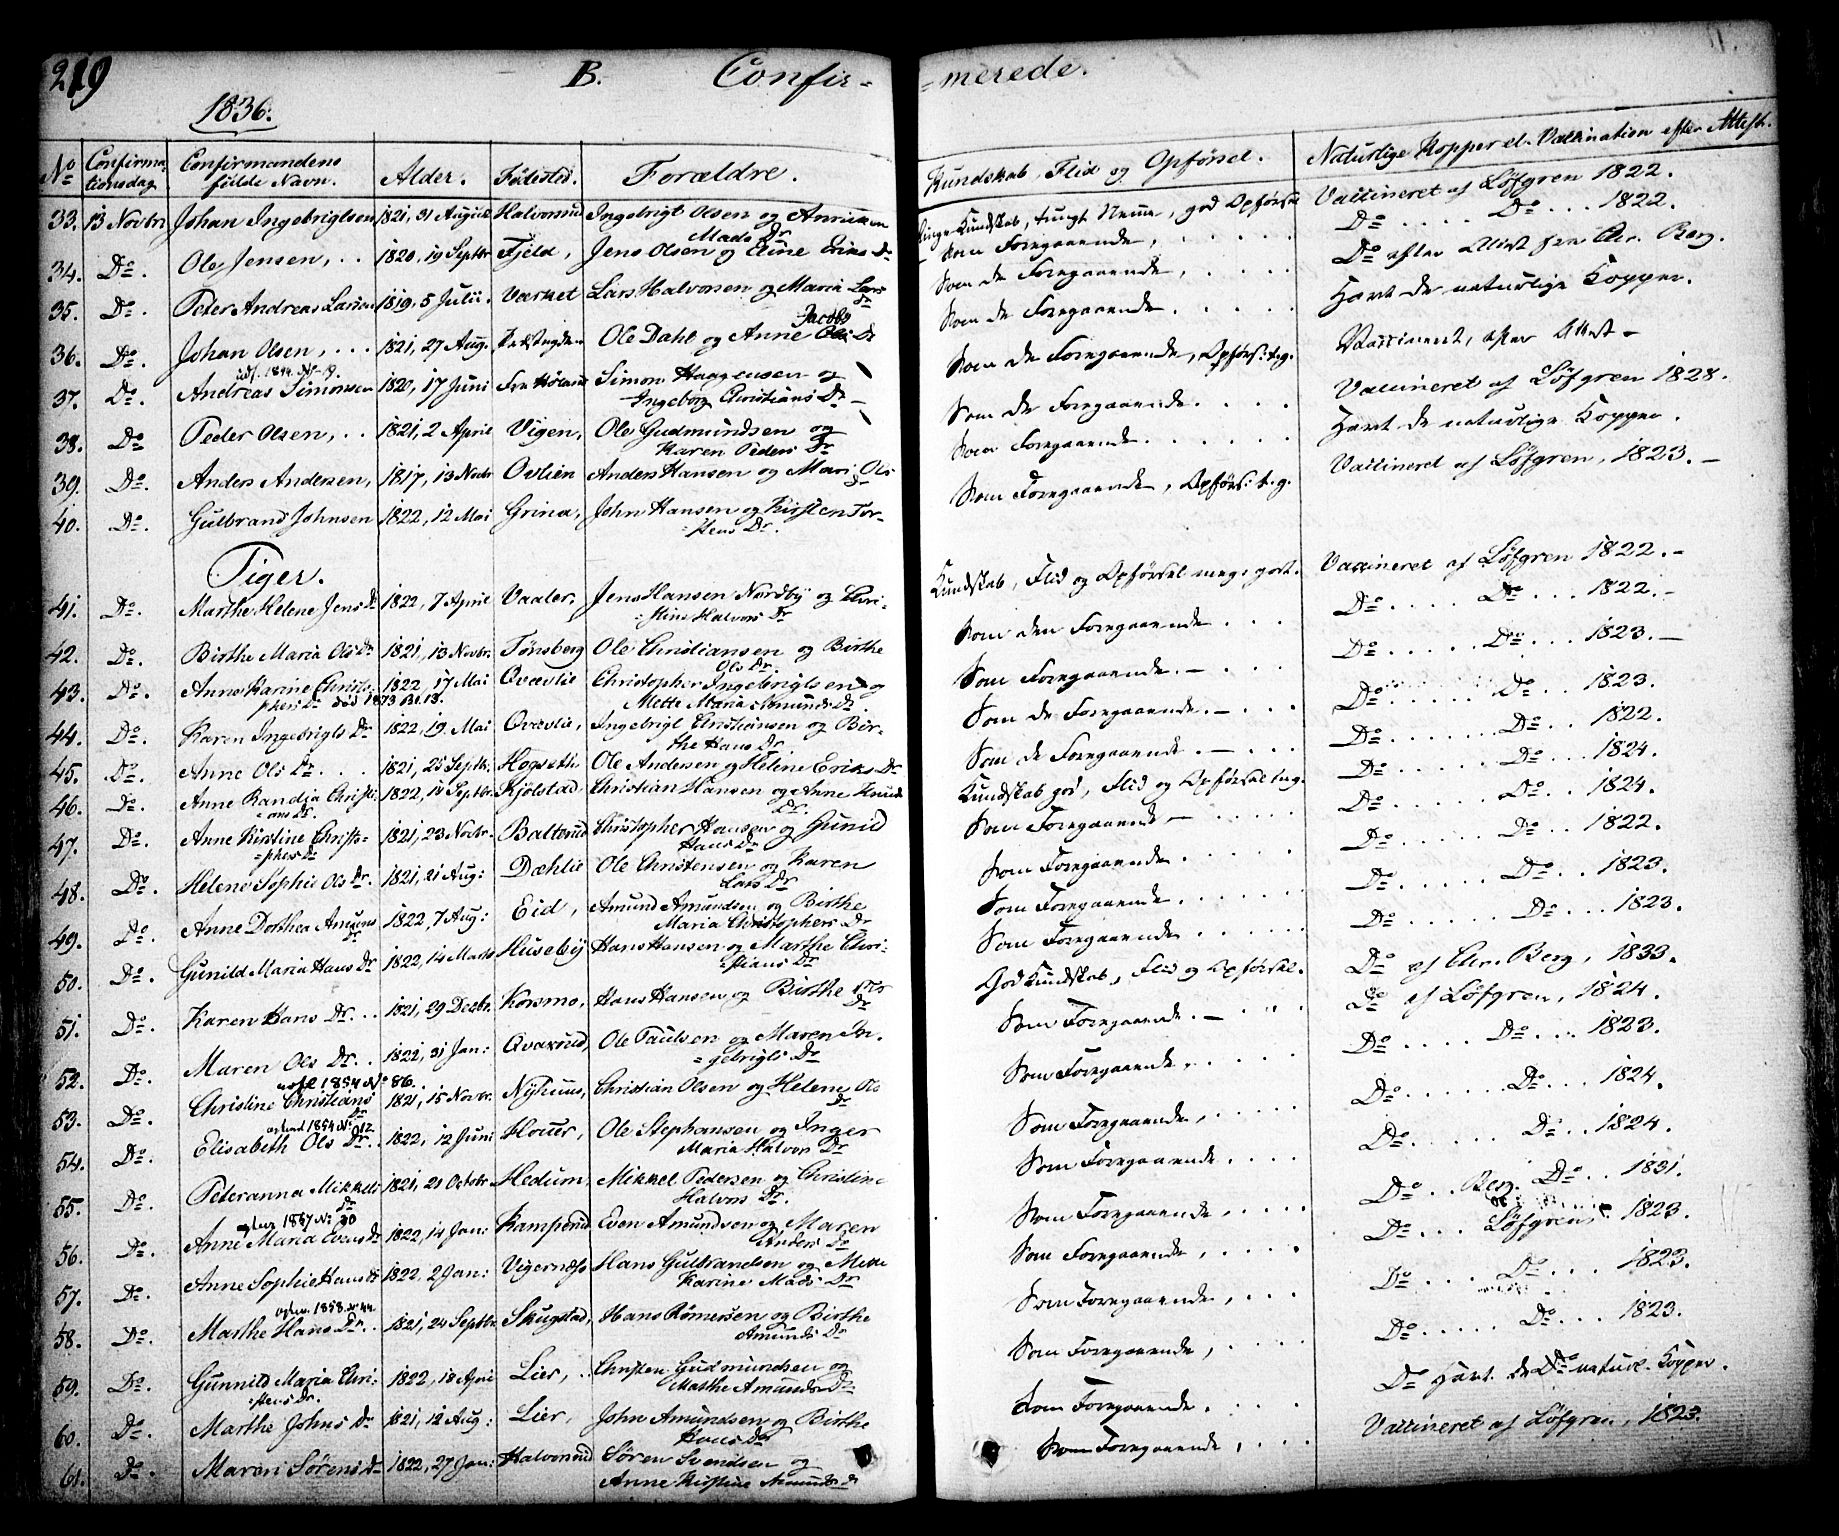 219 B. Confir= =merede.
1836.
No Confirma- tionsdag Confirmandens fulde Navn. Alder. Fødested. Forældre. Kundskab, Flid og Opførsel. Naturlige Kopper el. Vaccination efter Attest.
33. 13 Novbr Johan Ingebrigtsen 1821, 31 August Halvorsrud Ingebrigt Olsen og Mads Dr Kundskab, tungt Nemme, god Opførsel Vaccineret af Løfgren 1822.
34. Do. Ole Jensen, .. 1820, 19 Septbr Fjeld, Jens Olsen og Eline Eriks Dr Som Foregaaende, ..... Do .... Do ... 1822.
35. Do. Peter Andreas Larsen 1819, 5 Julii. Værket Lars Halvorsen og Maria Lars Dr Som de Foregaaende, .... Do efter Attest fra Chr. Berg.
36. Do. Johan Olsen, ... 1821, 27 Aug. Ole Dahl og Anne Jacobs Dr Som de Foregaaende, .... Havt de naturlige Kopper.
udf. 1844. No 19.
37. Do. Andreas Simonsen 1820, 17 Juni Simon Haagensen og Ingeborg Christians Dr – Som de Foregaaende, Opførs: t. g. Vaccineret, efter Attest –
38. Do Peder Olsen, .. 1821, 2 April Vigen, Ole Gudmundsen og Karen Peders Dr Som de Foregaaende. .... Vaccineret af Løfgren 1828.
39. Do. Anders Andersen, 1817, 13 Novbr Ovlien Anders Hansen og Mari Ols Dr Som Foregaaende. ..... Havt de naturlige Kopper.
40. Do. Gulbrand Johnsen 1822, 12 Mai Grina, John Hansen og Kirsten Tor- =stens Dr. Som Foregaaende, Opførs: t. g. Vaccineret af Løfgren, 1823. –
Piger.
41. Do. Marthe Helene Jens Dr 1822, 7 April Vaaler, Jens Hansen Nordby og Chri- =stine Halvors Dr Kundskab, Flid og Opførsel meg: godt. Vaccineret af Løfgren 1822. –
42. Do. Birthe Maria Ols Dr 1821, 13 Novbr. Tønsberg Ole Christiansen og Birthe Ols Dr Som den Foregaaende .... Do .... Do ... 1822. –
43. Do. Anne Karine Christo- phers Dr død 1873 No 13. 1822, 17 Mai Qvævlie Christopher Ingebrigtsen og Mette Maria Amunds Dr. Som Foregaaende. – ... Do ..... Do .. 1823. –
44. Do. Karen Ingebrigts Dr 1822, 19. Mai Qvævlie, Ingebrigt Christiansen og Bir- the Hans Dr Som de Foregaaende. – ... Do ..... Do .. 1823.
45. Do. Anne Ols Dr ... 1821, 25 Septbr. Hogseth Ole Andersen og Helene Eriks Dr Som de Foregaaende. – ... Do ...... Do .. 1822.
46. Do. Anne Randia Christi- =ans Dr. 1822, 14 Septbr. Kjølstad, Christian Hansen og Anne Knuds Dr. Kundskab god, Flid og Opførsel t. m. g. Do ...... Do ... 1824.
47. Do. Anne Kirstine Christo- =phers Dr 1821, 23 Novbr. Balterud Christopher Hansen og Gunild Hans Dr Som Foregaaende – ..... Do ...... Do .. 1824.
48. Do. Helene Sophie Ols Dr. 1821, 21 Aug: Dæhlie Ole Christensen og Karen Lars Dr Som Foregaaende. ..... Do ..... Do .. 1822.
49. Do. Anne Dorthea Amunds Dr 1822, 7 Aug: Eid, Amund Amundsen og Birthe Maria Christophers Dr Som Foregaaende. ..... Do ...... Do ... 1823.
50. Do. Gunild Maria Hans Dr 1822, 14 Marts Huseby Hans Hansen og Marthe Chri- =stians Dr Som Foregaaende ..... Do ...... Do ... 1823.
51. Do. Karen Hans Dr. .. 1821, 29 Decbr. Korsmo, Hans Hansen og Birthe Dr God Kundskab, Flid og Opførsel. Do af Chr. Berg, 1833.
52. Do. Maren Ols Dr. .. 1822, 31 Jan: Qvaxrud, Ole Paulsen og Maren In- =gebrigts Dr Som Foregaaende. – ... Do af Løfgren, 1824.
1854 No 86.
53. Do. Christine Christians Dr 1821, 15 Novbr. Nyhuus, Christian Olsen og Helene Ols Dr Som Foregaaende. ..... Do ..... Do ... 1823.
1854 No 12
54. Do. Elisabeth Ols Dr. . 1822, 12 Juni Houer, Ole Stephansen og Inger Maria Halvors Dr Som Foregaaende, ..... Do ...... Do ... 1824.
55. Do. Peteranna Mikkels Dr 1821, 21 Octobr. Hedum, Mikkel Pedersen og Christine Halvors Dr. Som Foregaaende, .... Do ...... Do .. 1824.
1857 No 30
56. Do. Anne Maria Evens Dr 1822, 14 Jan: Kamperud Even Amundsen og Maren Anders Dr Som Foregaaende, ..... Do ... Berg. Do .. 1831.
57. Do. Anne Sophie Hans Dr 1822, 2 Jan: Vigernæs Hans Gulbrandsen og Mette Karine Mads Dr Som Foregaaende, .... Do ..... Løfgren 1823.
1858 No 44.
58. Do. Marthe Hans Dr. . 1821, 24 Septbr Skugstad, Hans Rømersen og Birthe Amunds Dr Som Foregaaende, .... Do .... Do ... 1823.
59. Do. Gunnild Maria Chri- =stens Dr. 1822, 18 April Lier, . Christen Gudmundsen og Marthe Amunds Dr Som Foregaaende, .... Do ..... Do ... 1823.
60. Do. Marthe Johns Dr 1821, 12 Aug: Lier, John Amundsen og Birthe Hans Dr Som Foregaaende. .... Do Havt de natur. Kopper.
61. Do. Maren Sørens Dr 1822, 27 Jan: Halvorsrud Søren Svendsen og Anne Kirstine Amunds Dr Som Foregaaende, .... Vaccineret af Løfgren, 1823.